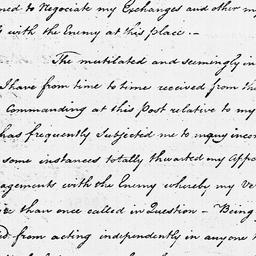 ned to Negociate my Exchanges and other my
with the Enemy at this place. —
The mutilated and seemingly in
I have from time to time received from the
Commanding at this Post relative to my
has frequently Subjected me to many incon
some instances totally thwarted my Appo
agements with the Enemy whereby my Ve
than once called in Question — Being
from acting independently in anyone